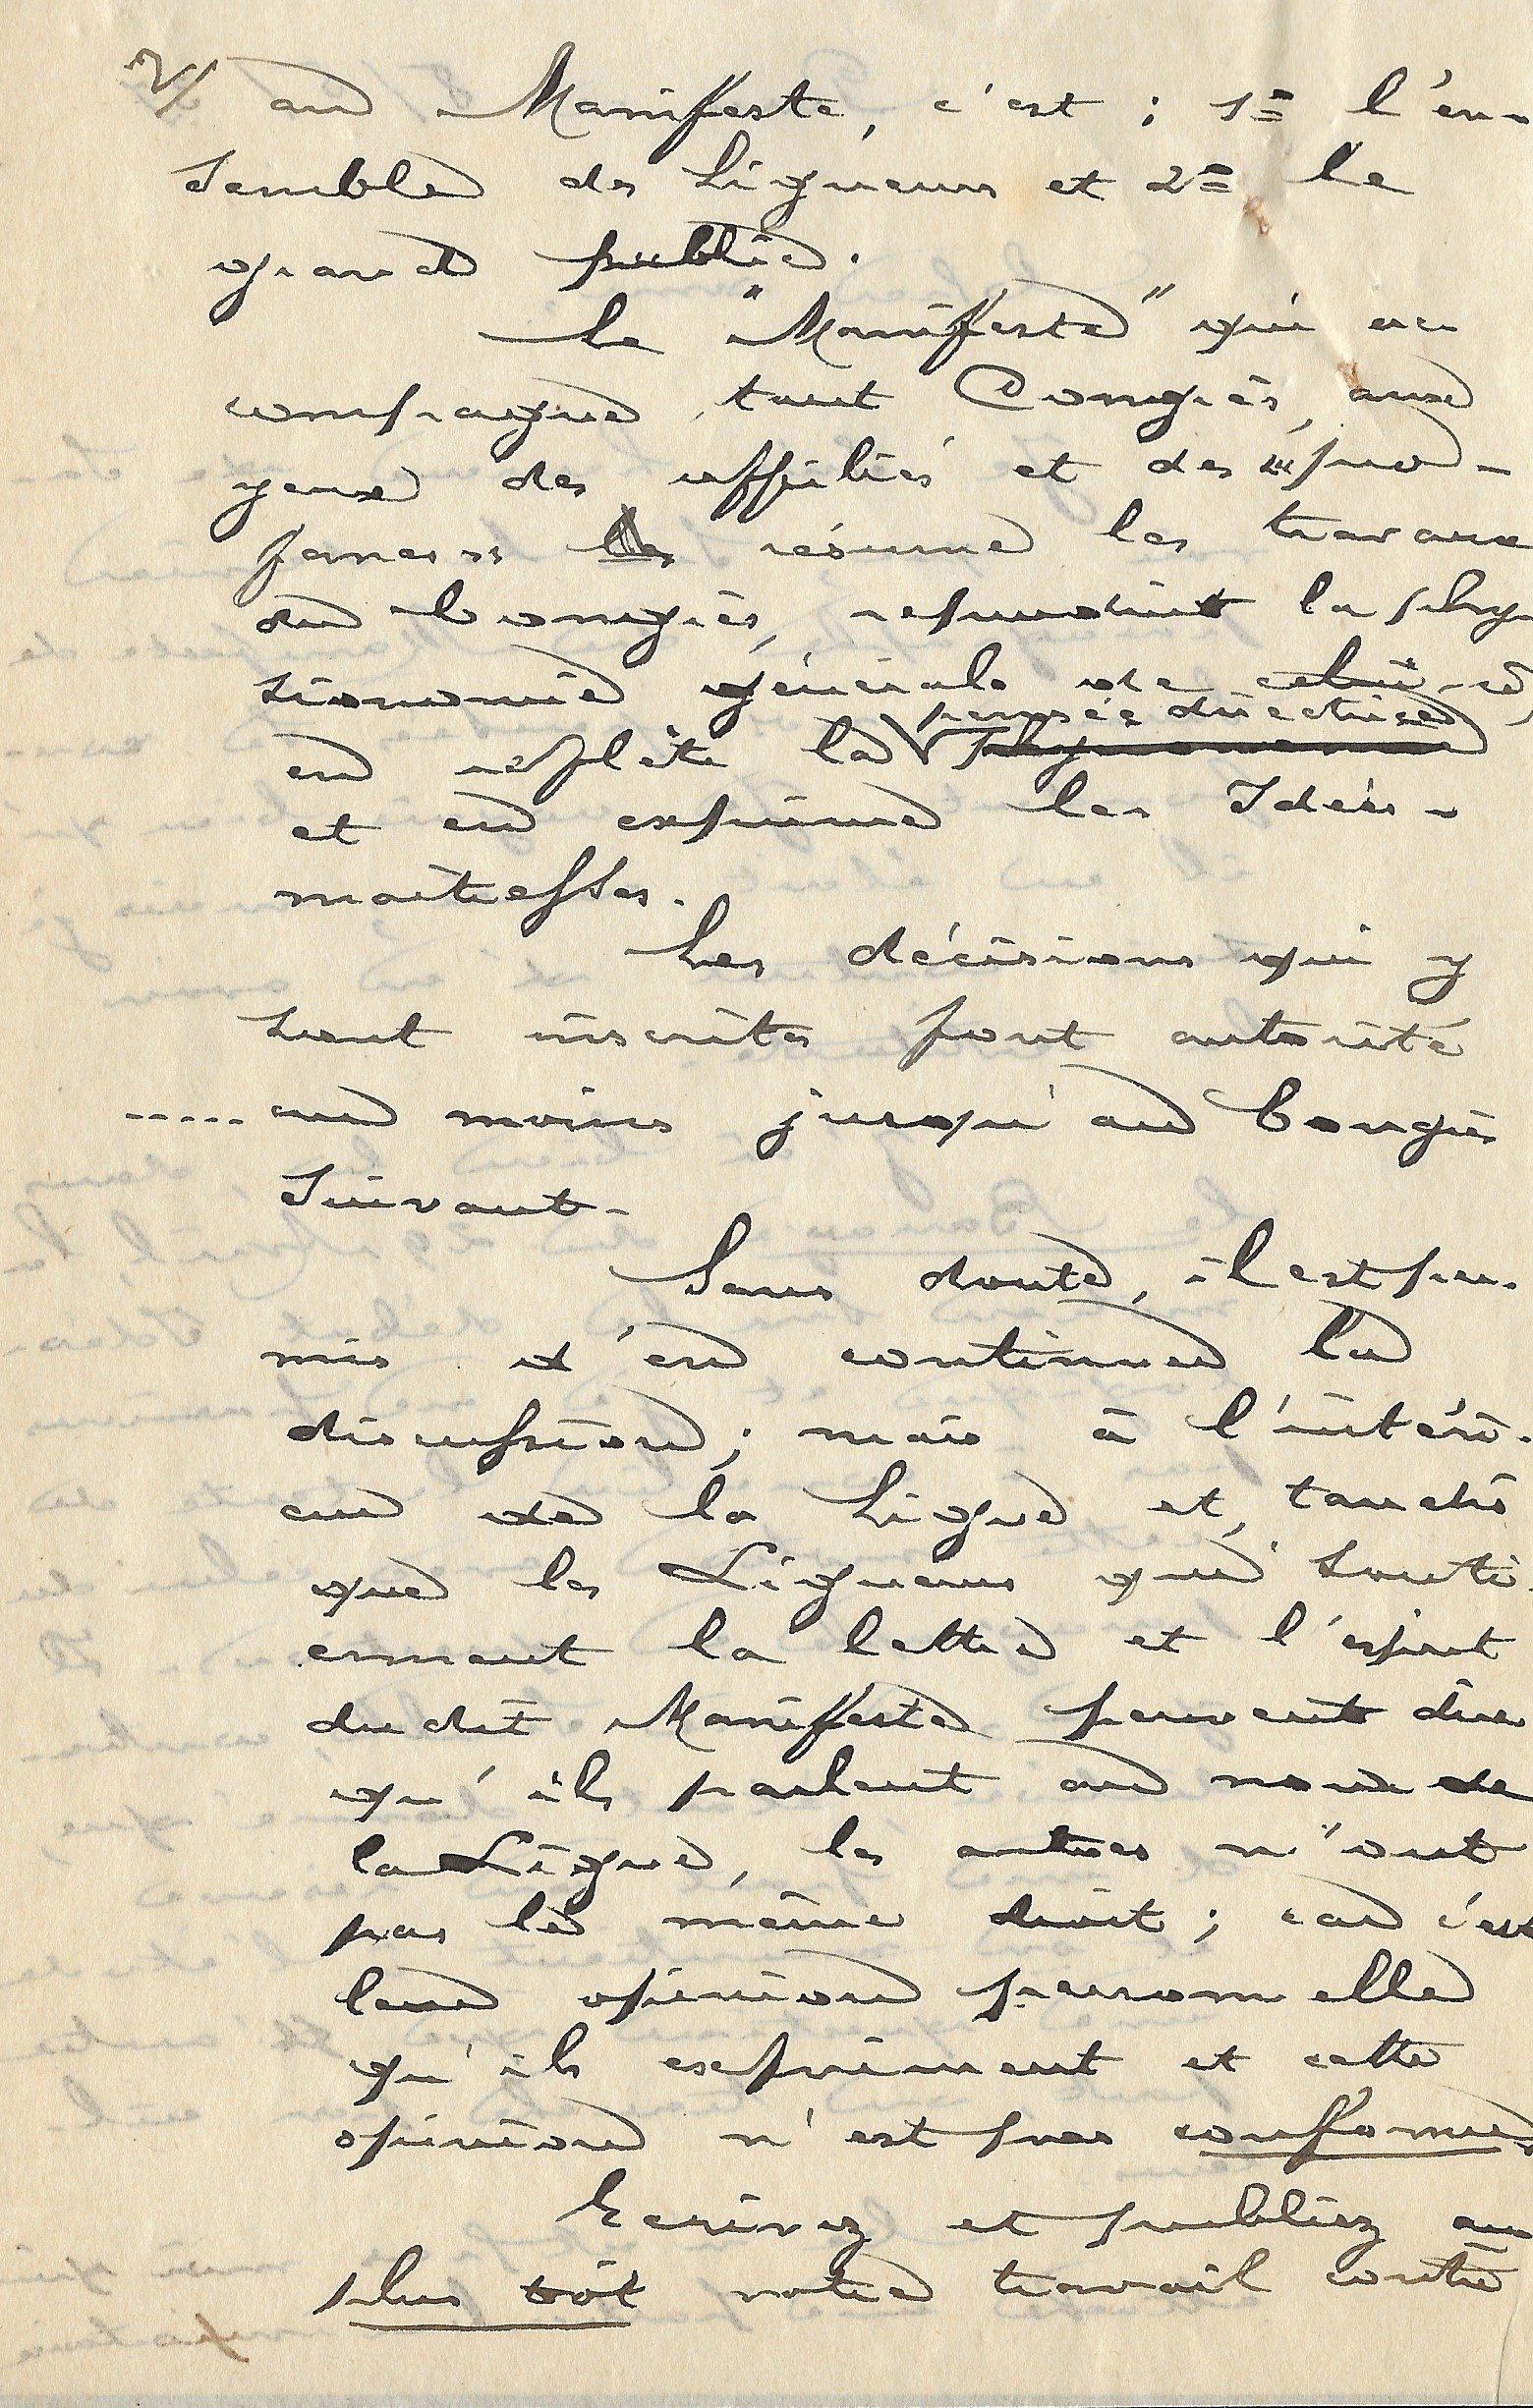 2/ au Manifeste, c'est : 1º l'en-
semble des Ligueurs et 2º le
grand public.
Le "Manifeste" qui ac
compagne tout Congrès, aux
yeux des affiliés et des "pro-
fanes" résume les travaux
du Congrès, reproduit la phy-
sionomie générale de celui-ci,
pensée directrice
en reflète la
et en exprime les Idées-
maîtresses.
Les décisions qui y
sont inscrites font autorité
..... au moins jusqu'au Congrès
suivant.
Sans doute, il est per-
mis d'en continuer la
discussion ; mais à l'intéri-
eur de la Ligue et, tandis
que les Ligueurs qui souti-
ennent la lettre et l'esprit
dudit Manifeste peuvent dire
qu'ils parlent au nom de
la Ligue, les autres n'ont
pas le même droit ; car c'est
leur opinion personnelle
qu'ils expriment et cette
opinion n'est pas conforme.
Ecrivez et publiez au
plus tôt votre travail contre